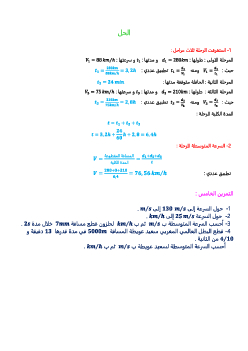 الحل
1- استغرقت الرحلة ثلاث مراحل :
المرحلة الأولى : طولها : d₁ = 280km و مدتها : t₁ و سرعتها : V₁ = 88km/h
حيث : V₁ = d₁/t₁ ومنه t₁ = d₁/V₁ تطبيق عددي : t₁ = 280km/88km/h = 3,2h
المرحلة الثانية : الحافلة متوقفة مدتها : t₂ = 24 min
المرحلة الثالثة : طولها : d₃ = 210km و مدتها : t₃ و سرعتها : V₃ = 75 km/h
حيث : V₃ = d₃/t₃ ومنه t₃ = d₃/V₃ تطبيق عددي : t₃ = 210km/75km/h = 2,8h
المدة الكلية للرحلة :
t = t₁ + t₂ + t₃
t = 3,2h + 24/60 h + 2,8 = 6,4h
2- السرعة المتوسطة للرحلة :
V = المسافة المقطوعة/المدة الكلية = d₁+d₂+d₃/t
تطبيق عددي : V = 280+0+210/6,4 = 76,56 km/h
التمرين الخامس :
1- حول السرعة إلى 130 m/s إلى m/s .
2- حول السرعة 25 m/s إلى km/h .
3- أحسب السرعة المتوسطة ب m/s ثم ب km/h لحلزون قطع مسافة 7mm خلال مدة 2s .
4- قطع البطل العالمي المغربي سعيد عويطة المسافة 5000m في مدة قدرها 13 دقيقة و
4/10 من الثانية .
أحسب السرعة المتوسطة لسعيد عويطة ب m/s ثم ب km/h .